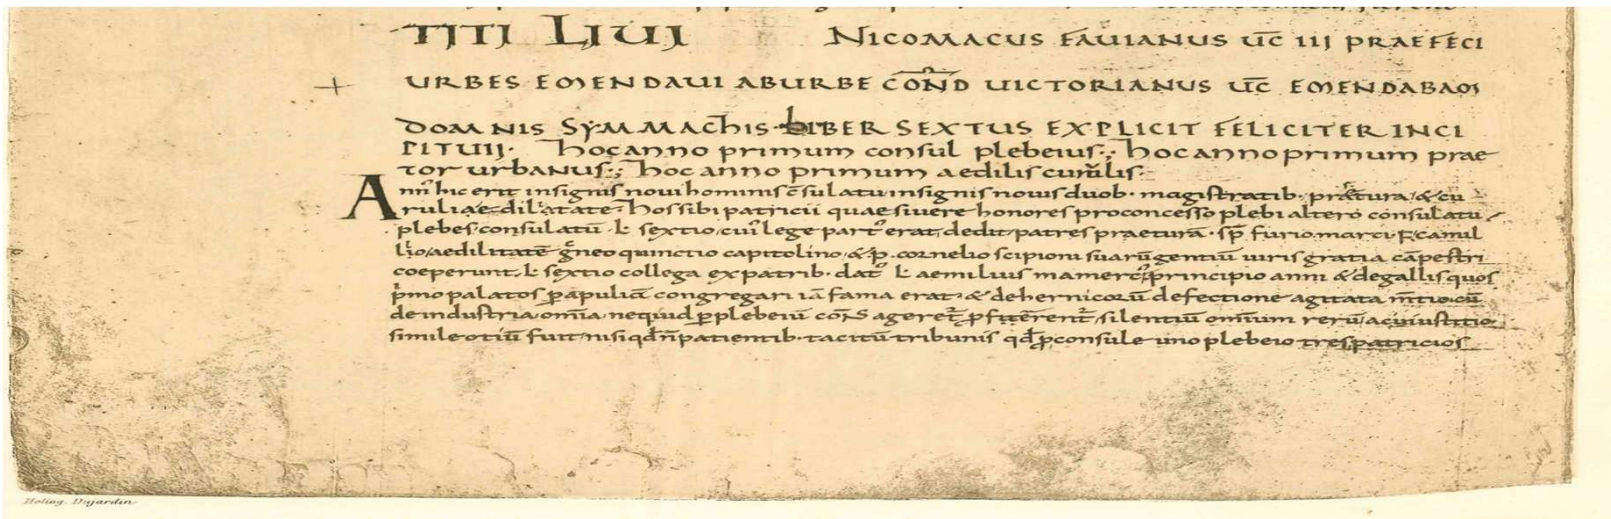 TITI LIUII NICOMACUS FAUIANUS UC̅ III PRAEFECI
URBES EMENDAUI AB URBE CO̅ND UICTORIANUS UC̅ EMENDABAM
DOMNIS SYMMACHIS· LIBER SEXTUS EXPLICIT FELICITER INCI
PIT UII· hoc anno primum consul plebeius·; hoc anno primum prae
tor urbanus·; hoc anno primum aedilis curulis·
Ann' hic erit insignis noui hominis c̅sulatu insignis nouis duob· magistratib· praetura & cu
ruli aedilitate· hos sibi patricii quaesiuere honores pro concesso plebi altero consulatu
plebes consulatu̅· L· sextio cui' lege part' erat dedit patres praetura̅· sp̅ furio marci F camil
lo aedilitate̅ gneo quinctio capitolino & p· cornelio scipioni suaru̅ gentiu̅ uiris gratia ca̅pestri
coeperunt· L· sextio collega ex patrib· dat' L· aemilius mamerc' principio anni & de gallis quos
p'mo palatos p̱ apulia̅ congregari ia̅ fama erat & de hernicoru̅ defectione agitata m̅tio cu̅
de industria om̅ia ne quid p̱ plebeiu̅ co̅s ageret' silentiu̅ om̅ium reru̅ ac iustitio
simile otiu̅ fuit nisi qd̅ n̅ patientib· tacitu̅ tribunis qd̅ p̱ consule uno plebeio tres patricios
Heliog. Dujardin